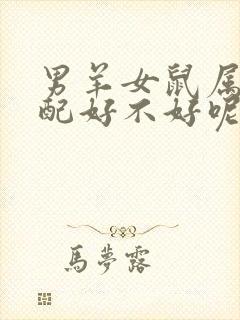 男羊女鼠属
配好不好呢
馬夢露